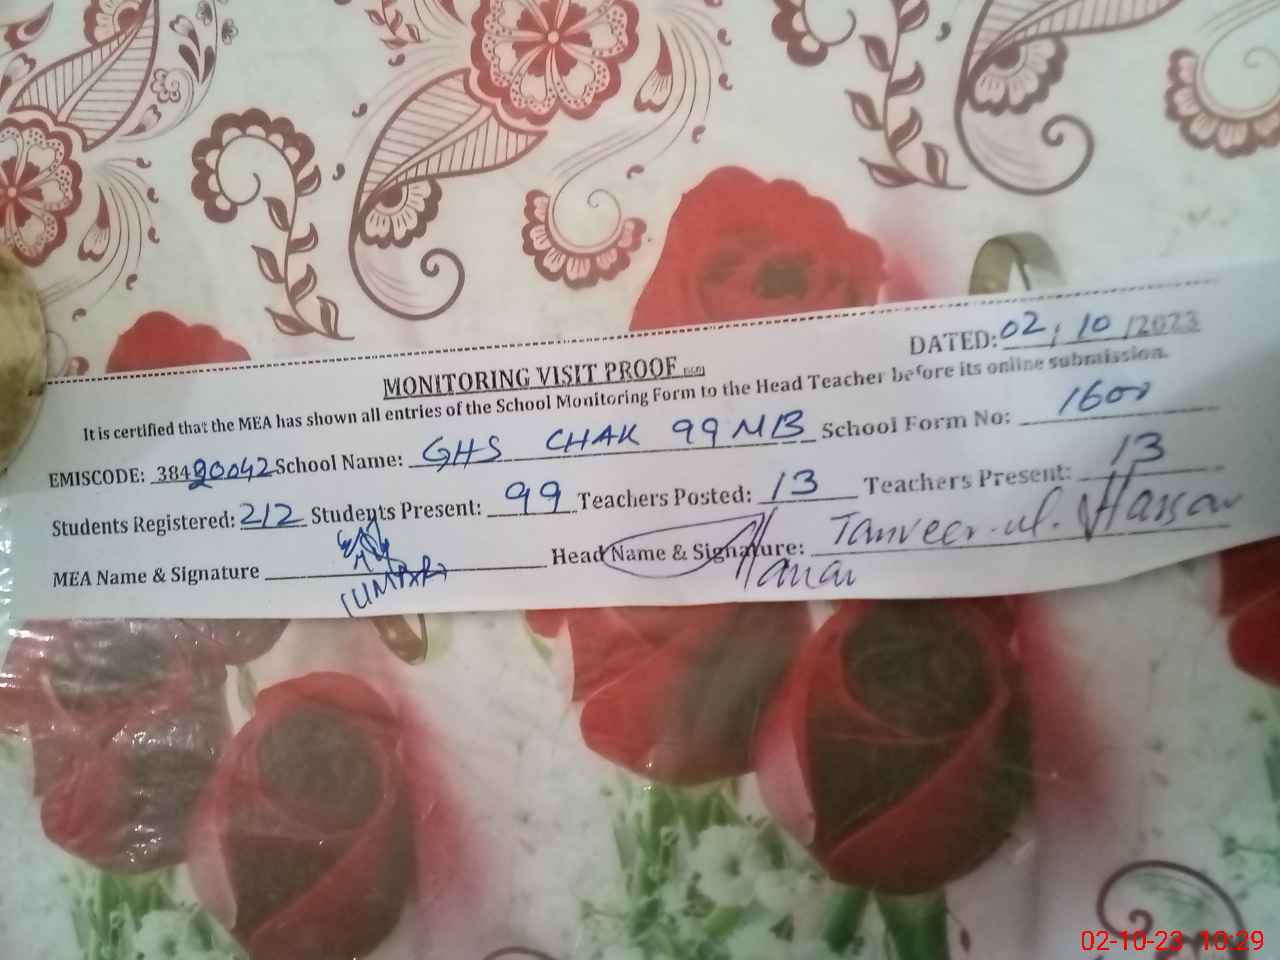 DATED: 02/10/2023
MONITORING VISIT PROOF
It is certified that the MEA has shown all entries of the School Monitoring Form to the Head Teacher before its online submission.
EMISCODE: 38420042 School Name: GHS CHAK 99 MB School Form No: 1600
Students Registered: 212 Students Present: 99 Teachers Posted: 13 Teachers Present: 13
MEA Name & Signature Head Name & Signature: Tanveer-ul-Hassan
02-10-23 10:29